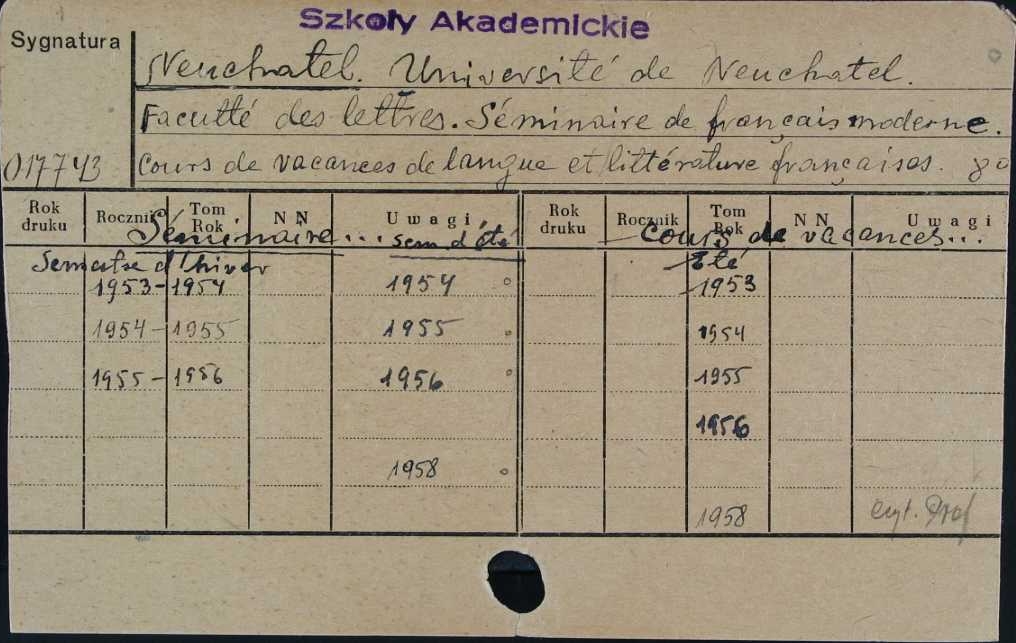 Szkoły Akademickie
Sygnatura
Neuchatel. Université de Neuchatel.
Faculté des lettres. Séminaire de français moderne.
017743 Cours de vacances de langue et littérature françaises. 80
Rok druku Rocznik Tom Rok NN Uwagi Rok druku Rocznik Tom Rok NN Uwagi
Séminaire... sem. d'été Cours de vacances...
Semestre d'hiver Eté
1953-1954 1954 1953
1954-1955 1955 1954
1955-1956 1956 1955
1956
1958
1958